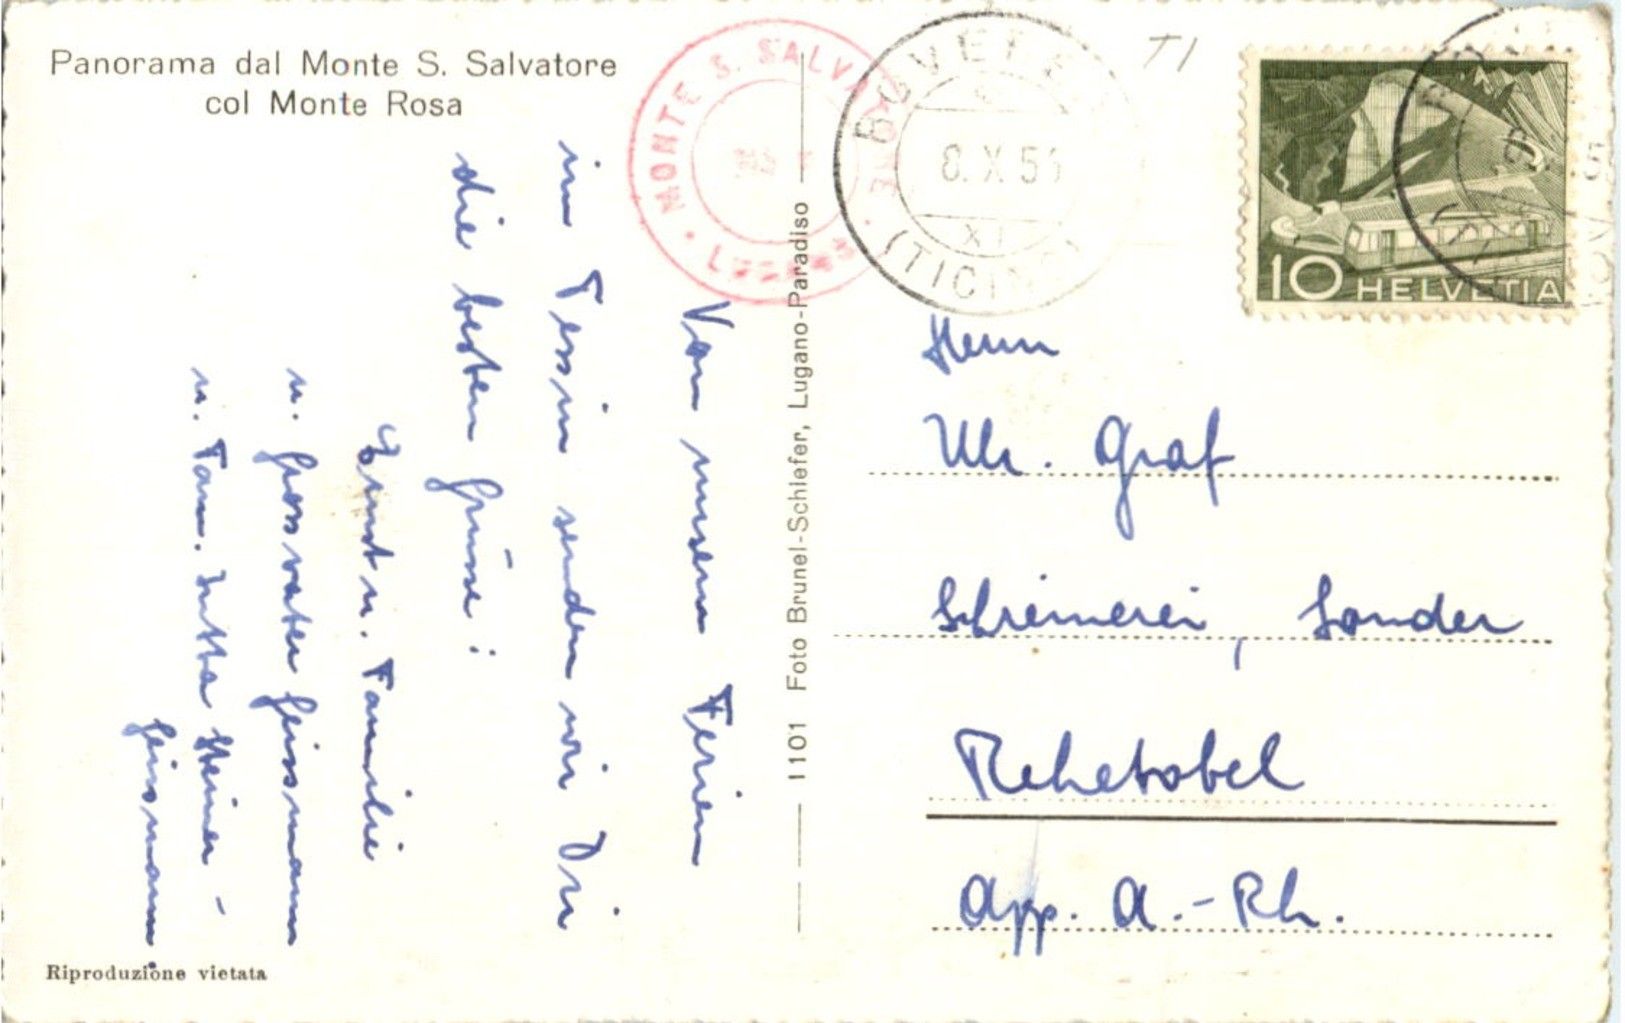 Panorama dal Monte S. Salvatore
col Monte Rosa
MONTE S. SALVATORE
LUGANO
BOVE
8. X. 5
XI
(TICINO)
TI
10 HELVETIA
Von unsern Ferien
im Tessin senden wir Dir
die besten Grüsse:
Ernst u. Familie
u. Grossvater Geissmann
u. Fam. Jutta Steiner-
Geissmann
Riproduzione vietata
1101 Foto Brunel-Schiefer, Lugano-Paradiso
Herrn
Ulr. Graf
Schreinerei, Sonder
Rehetobel
App. A.-Rh.